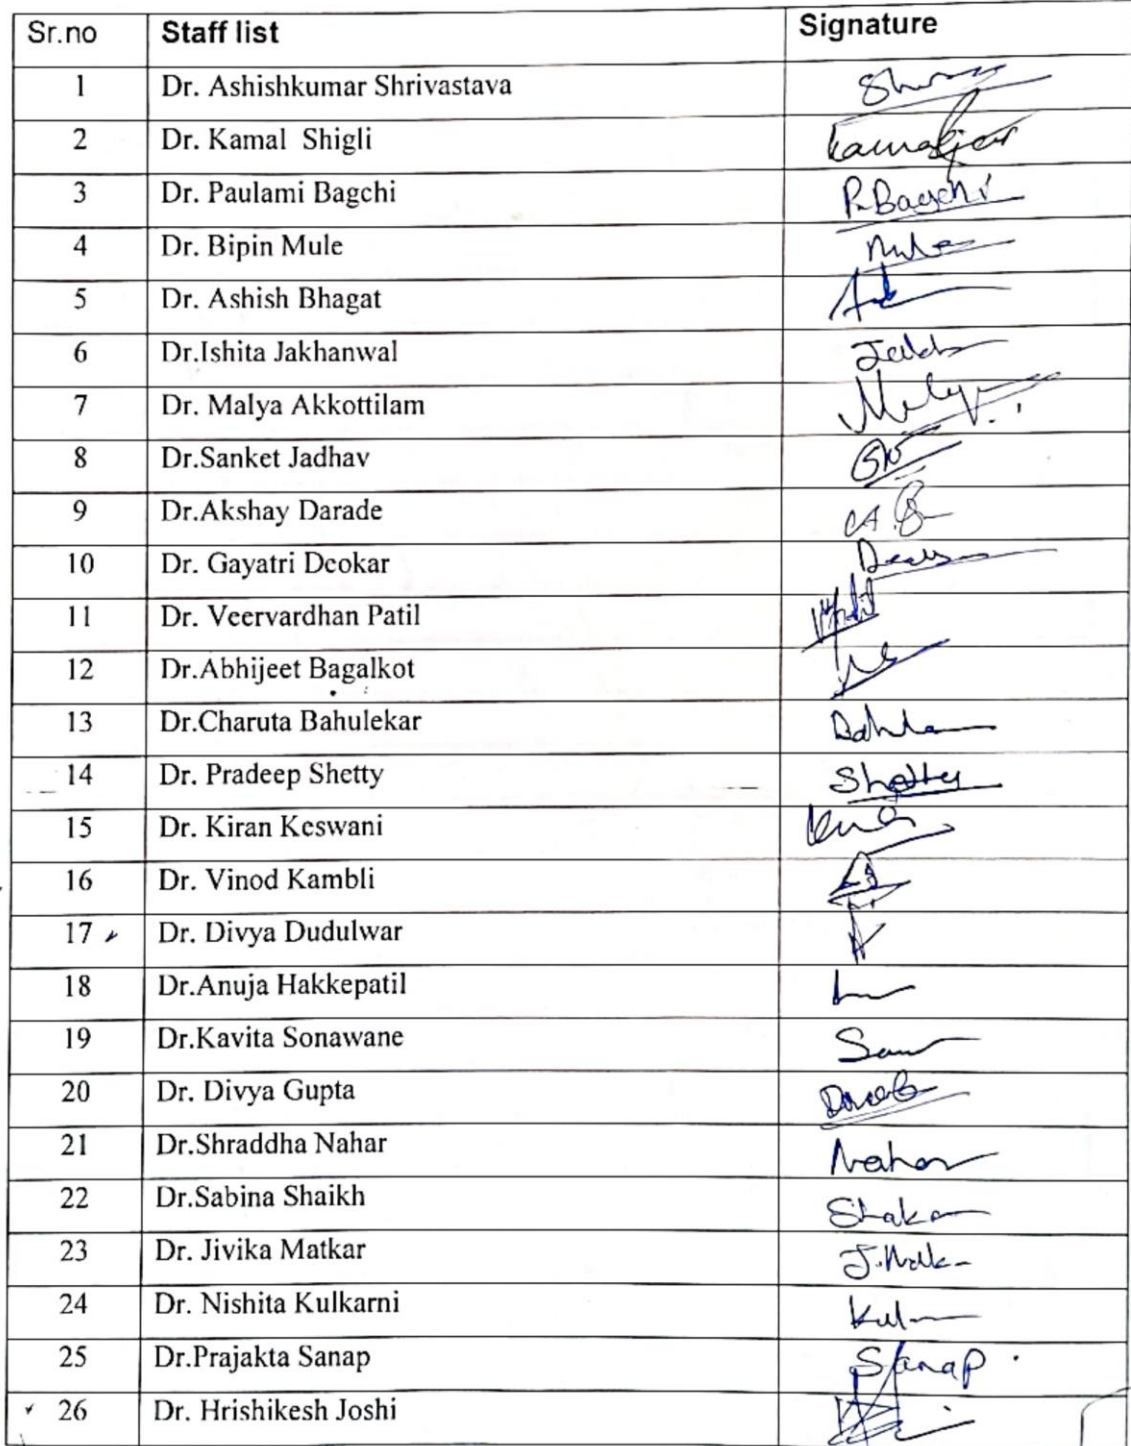 Sr.no Staff list Signature
1 Dr. Ashishkumar Shrivastava
2 Dr. Kamal Shigli
3 Dr. Paulami Bagchi P.Bagchi
4 Dr. Bipin Mule Mule
5 Dr. Ashish Bhagat
6 Dr.Ishita Jakhanwal
7 Dr. Malya Akkottilam
8 Dr.Sanket Jadhav
9 Dr.Akshay Darade
10 Dr. Gayatri Deokar
11 Dr. Veervardhan Patil
12 Dr.Abhijeet Bagalkot
13 Dr.Charuta Bahulekar
14 Dr. Pradeep Shetty Shetty
15 Dr. Kiran Keswani
16 Dr. Vinod Kambli
17 Dr. Divya Dudulwar
18 Dr.Anuja Hakkepatil
19 Dr.Kavita Sonawane
20 Dr. Divya Gupta
21 Dr.Shraddha Nahar Nahar
22 Dr.Sabina Shaikh
23 Dr. Jivika Matkar
24 Dr. Nishita Kulkarni
25 Dr.Prajakta Sanap Sanap
26 Dr. Hrishikesh Joshi